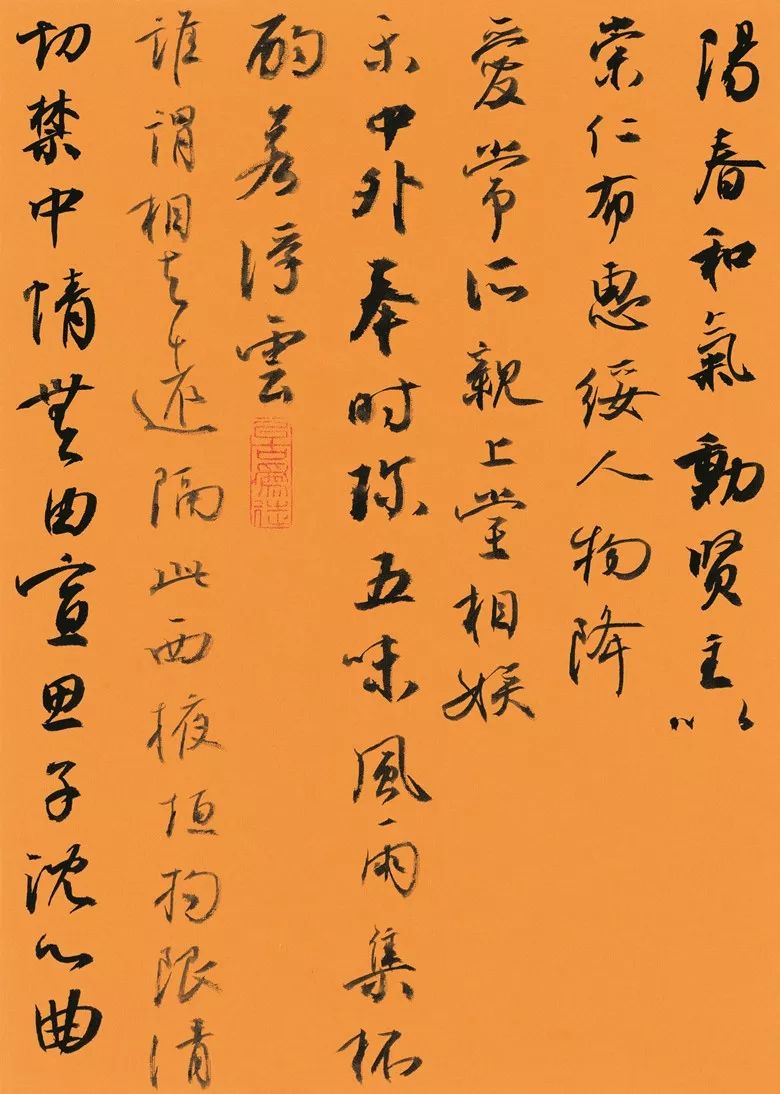 陽春和氣動贤主以
崇仁布惠綏人物降
愛常所親上堂相娱
乐中外奉时珍五味風雨集杯
酌若浮雲
誰謂相去遠隔此西掖垣拘限清
切禁中情無由宣思子沈心曲